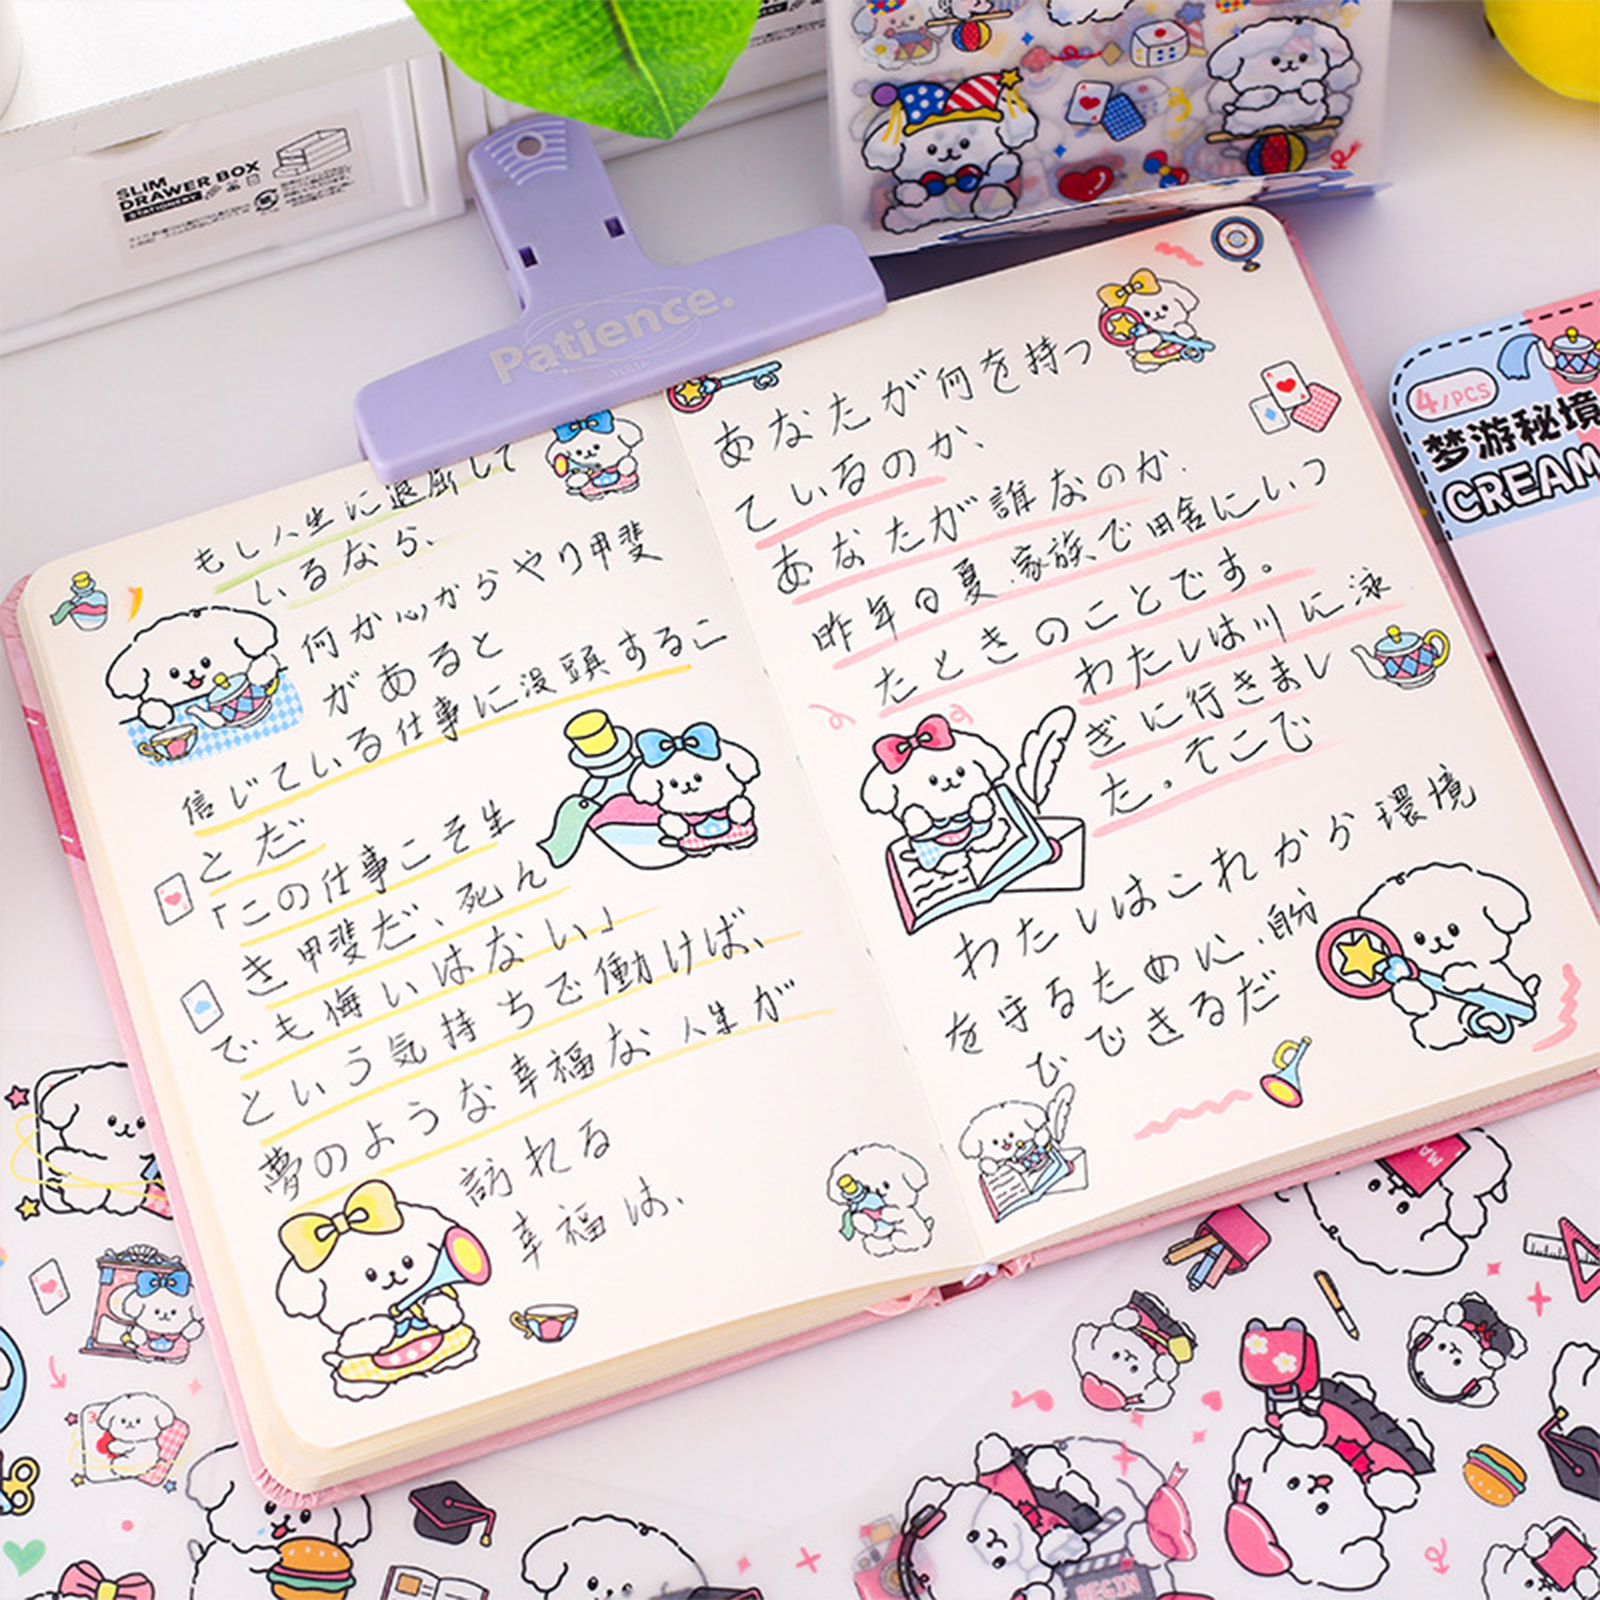 SLIM
DRAWER BOX
STATIONERY
Patience.
もし人生に退屈して
いるなら、
何か心からやり甲斐
があると
信じている仕事に没頭するこ
とだ
「この仕事こそ生
き甲斐だ、死ん
でも悔いはない」
という気持ちで働けば、
夢のような幸福な人生が
訪れる
幸福は、
あなたが何を持っ
ているのか、
あなたが誰なのか.
昨年の夏、家族で田舎にいっ
たときのことです。
わたしは川に泳
ぎに行きまし
た。そこで
わたしはこれから環境
を守るために、
で できるだ
4/PCS
梦游秘境
CREAM
BEGIN